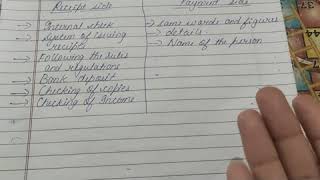 Receipt side
Payment side
→ Internal check
→ System of issuing
receipts
→ Following the rules
and regulations
→ Bank deposit
→ Checking of copies
→ Checking of Income
→ Same words and figures
→ details
→ Name of the person
37
44